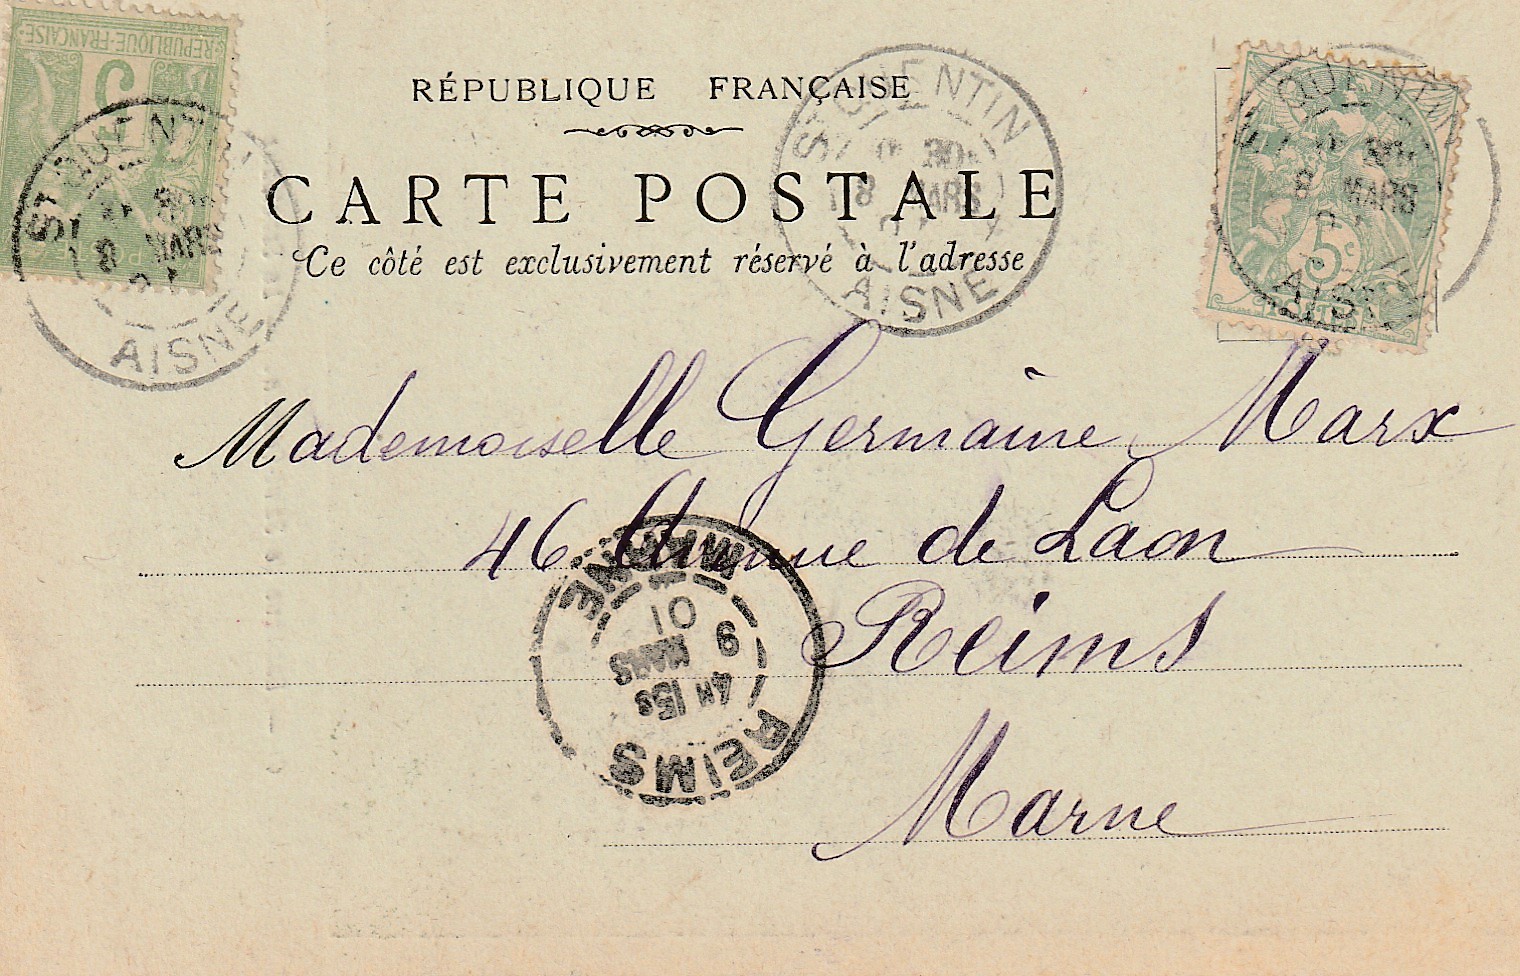 RÉPUBLIQUE FRANÇAISE
CARTE POSTALE
Ce côté est exclusivement réservé à l'adresse
REPUBLIQUE FRANÇAISE
5
ST QUENTIN
8 MARS
AISNE
ST QUENTIN
8 MARS
AISNE
5c
ST QUENTIN
8 MARS
AISNE
Mademoiselle Germaine Marx
46 Avenue de Laon
Reims
Marne
REIMS
4M 15S
9
MARS
01
MARNE